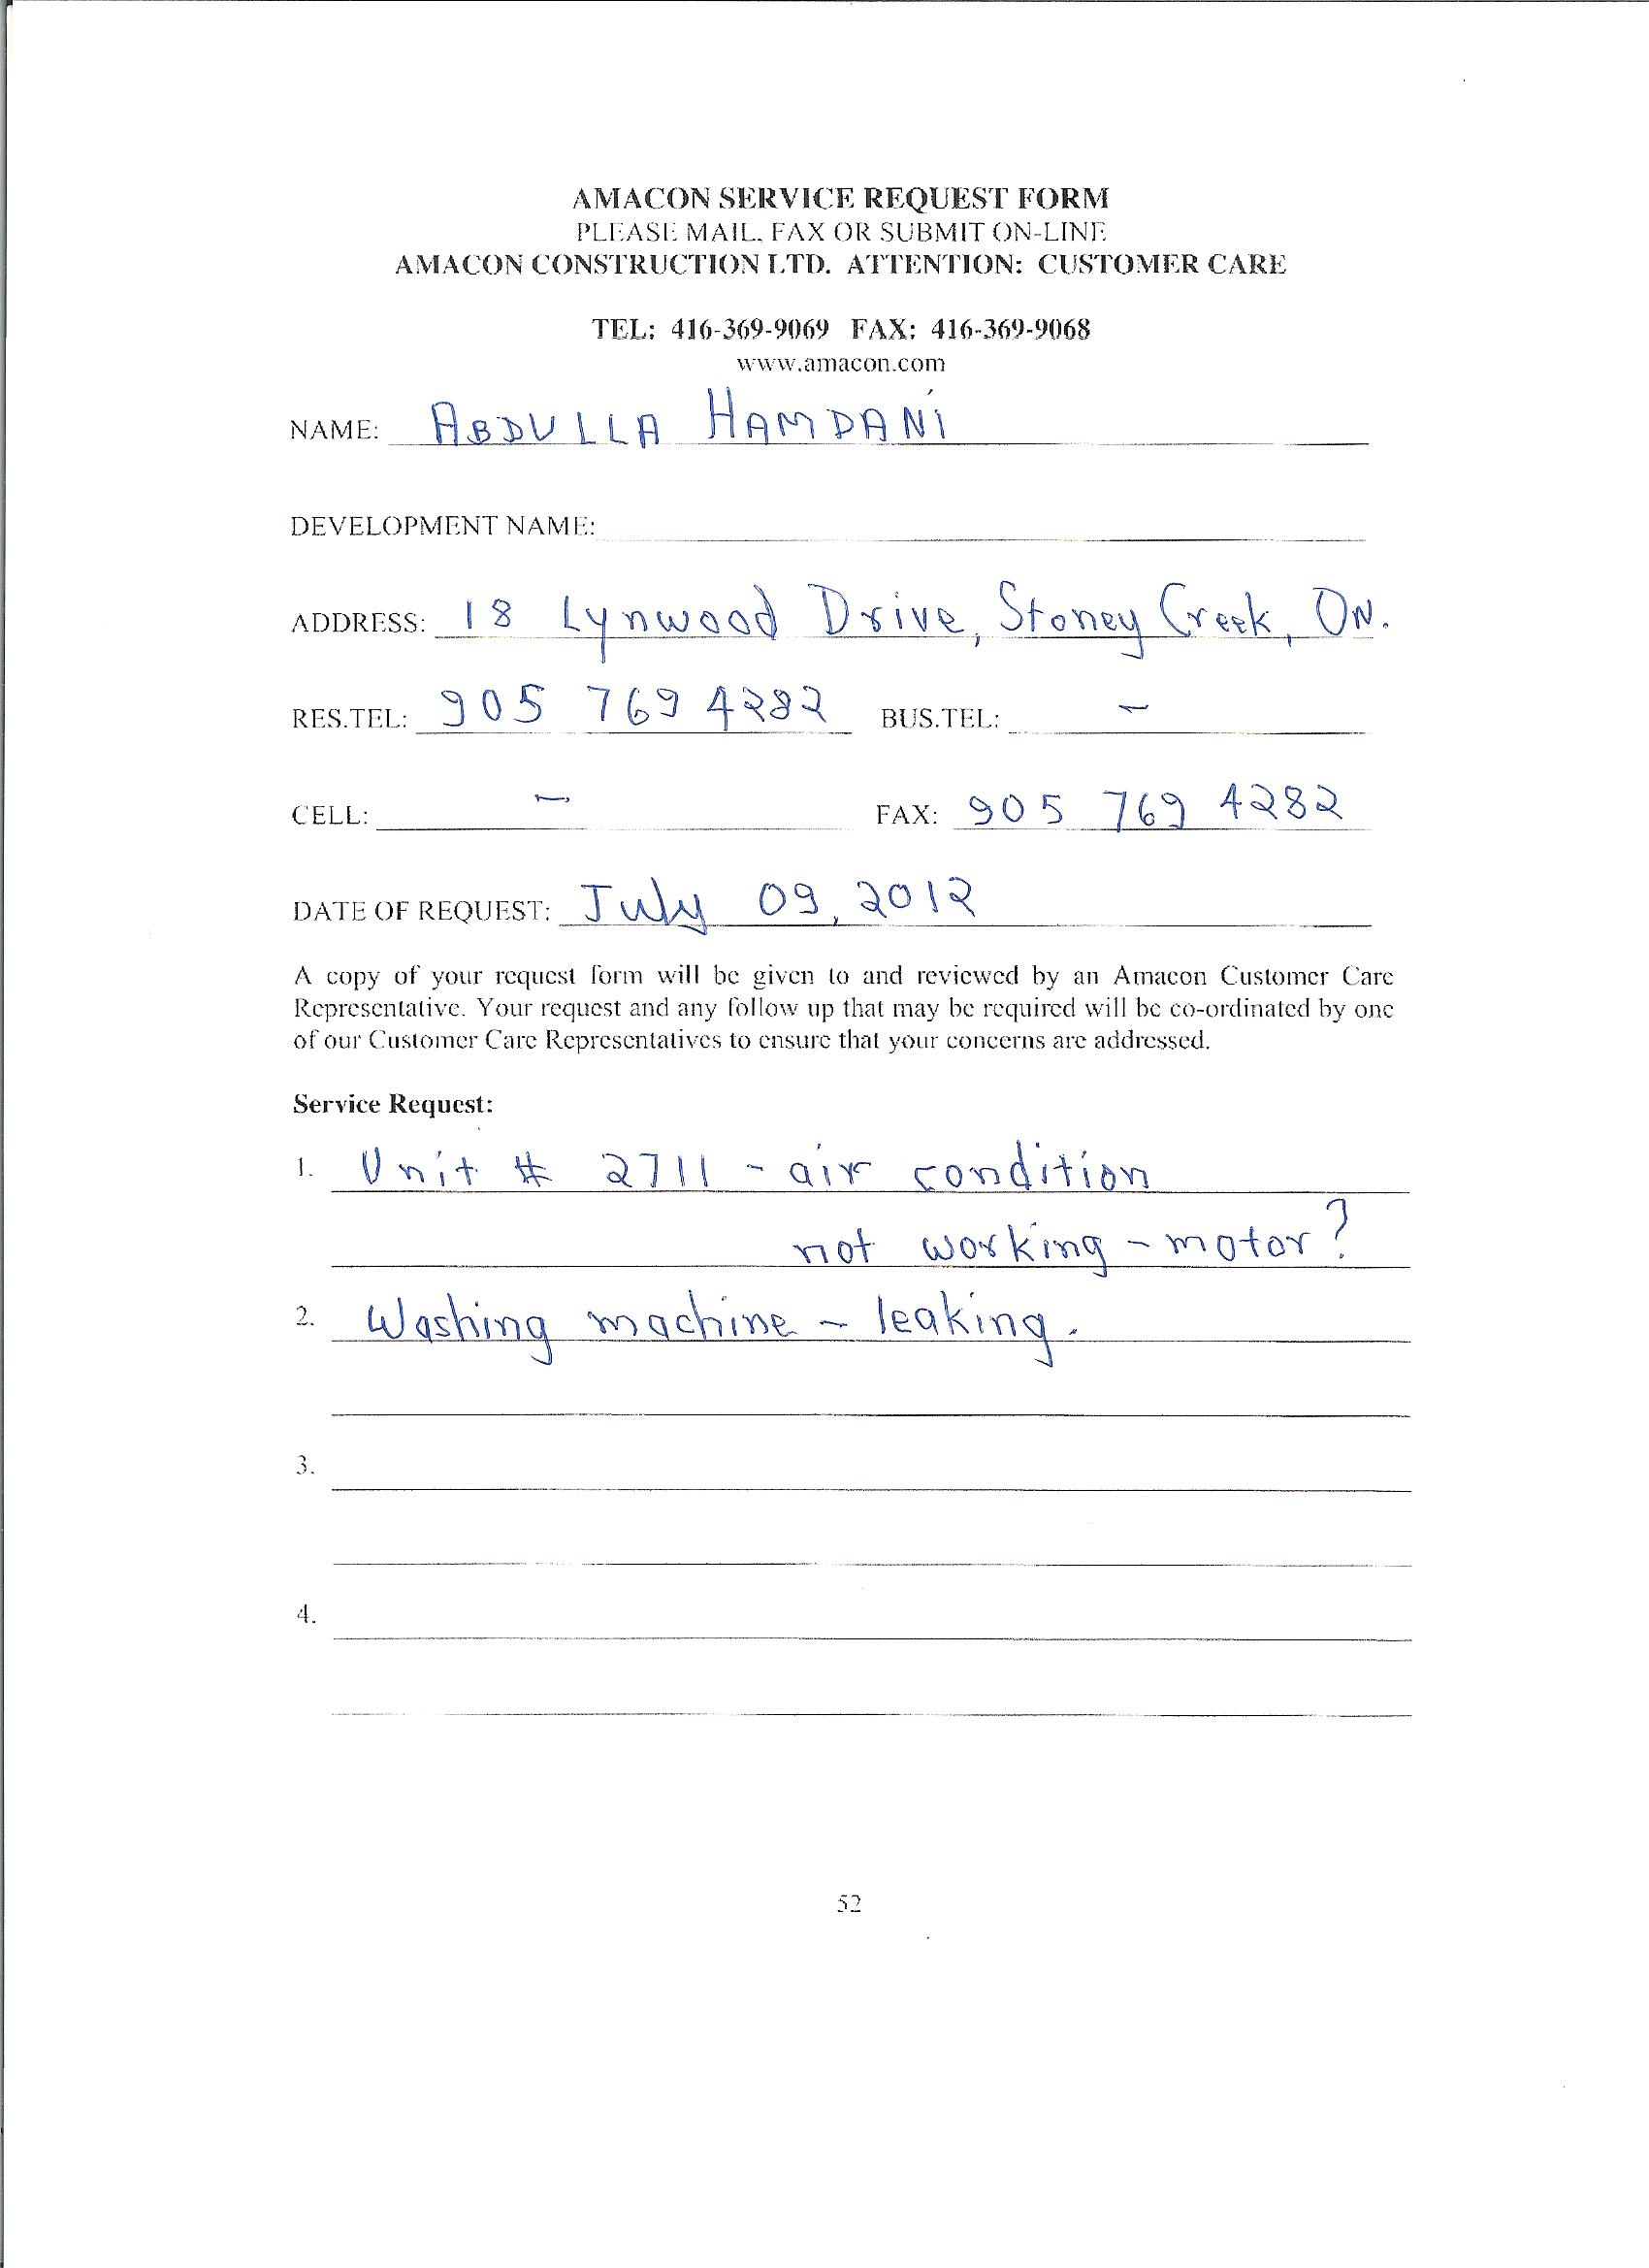 AMACON SERVICE REQUEST FORM
PLEASE MAIL, FAX OR SUBMIT ON-LINE
AMACON CONSTRUCTION LTD. ATTENTION: CUSTOMER CARE
TEL: 416-369-9069 FAX: 416-369-9068
www.amacon.com
NAME: ABDULLA HAMDANI
DEVELOPMENT NAME:
ADDRESS: 18 Lynwood Drive, Stoney Creek, ON.
RES.TEL: 905 769 4282 BUS.TEL: -
CELL: - FAX: 905 769 4282
DATE OF REQUEST: July 09, 2012
A copy of your request form will be given to and reviewed by an Amacon Customer Care
Representative. Your request and any follow up that may be required will be co-ordinated by one
of our Customer Care Representatives to ensure that your concerns are addressed.
Service Request:
1. Unit # 2711 - air condition
not working - motor?
2. Washing machine - leaking.
3.
4.
52